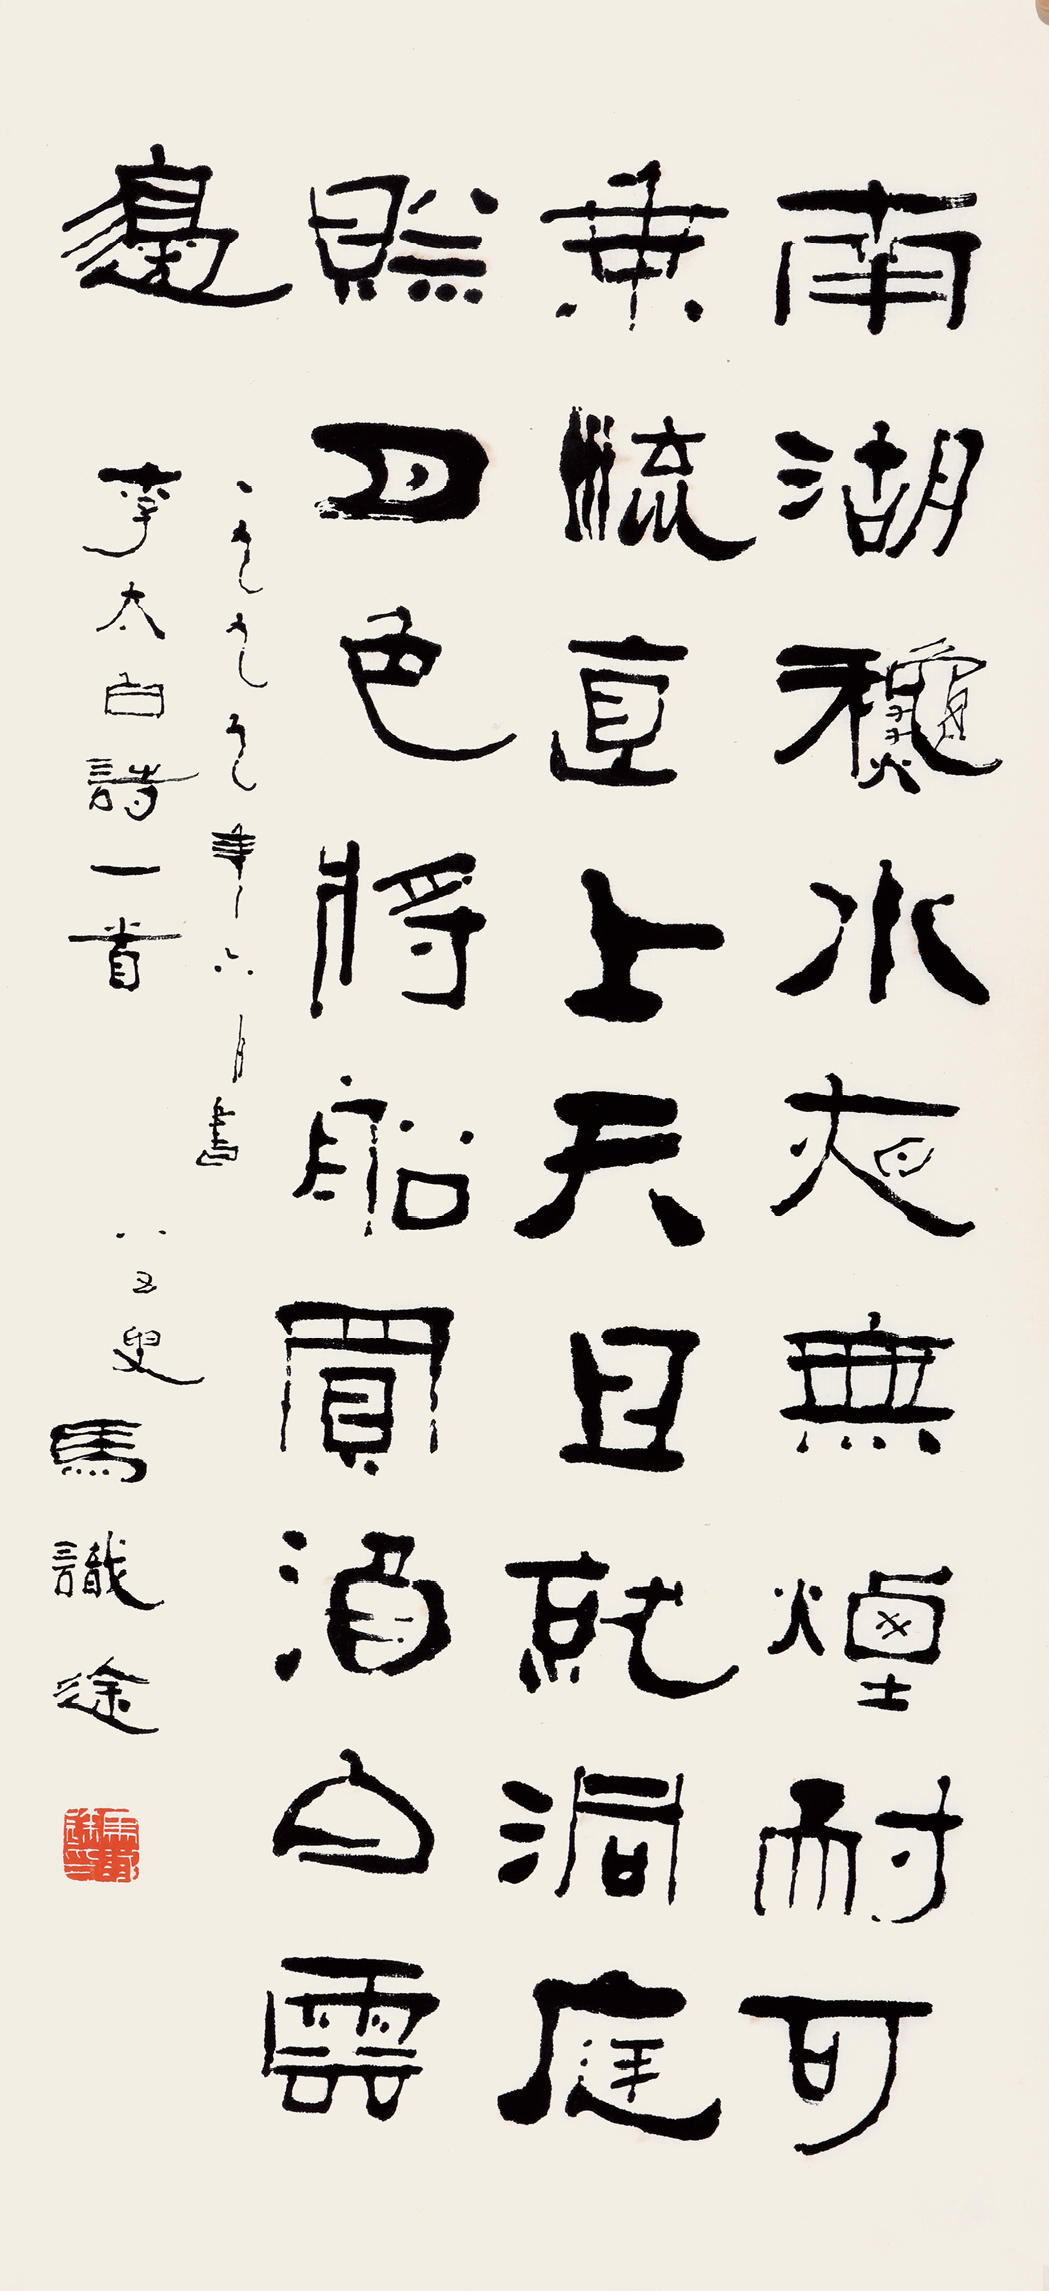 南湖龝水夜無煙耐可
乘流直上天且就洞庭
賒月色將船買酒白雲
邊
李太白詩一首
一九九九年六月書
八五叟馬識途